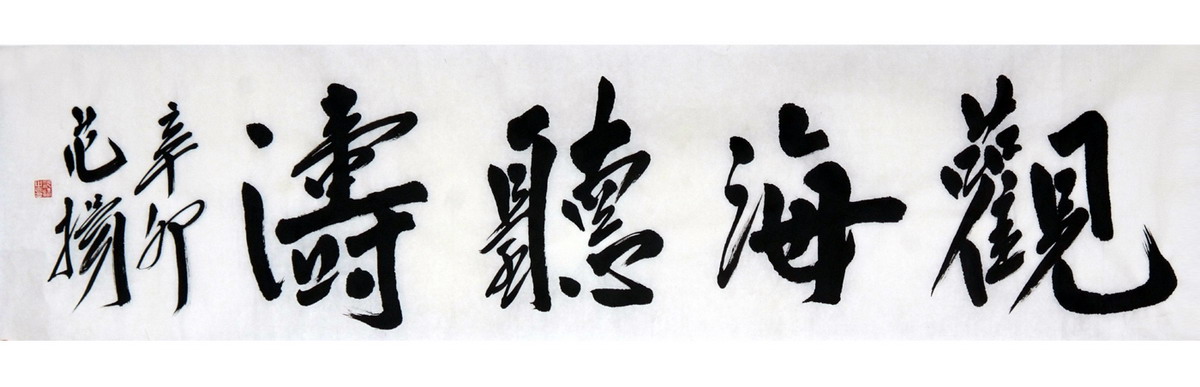 觀海聽濤
辛卯
范